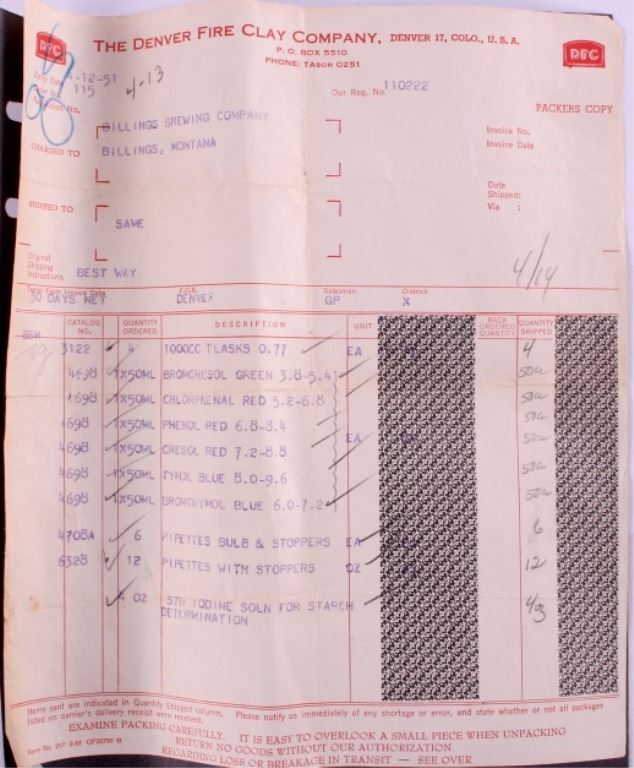 DFC
THE DENVER FIRE CLAY COMPANY, DENVER 17, COLO., U. S. A.
P. O. BOX 5510
PHONE: TABOR 0251
DFC
Entry Date 4-12-51
115
4-13
Our Reg. No. 110222
PACKERS COPY
CHARGED TO
BILLINGS BREWING COMPANY
BILLINGS, MONTANA
Invoice No.
Invoice Date
Date Shipped:
Via :
SHIPPED TO
SAME
Original Shipping Instructions BEST WAY
4/14
Terms From Invoice Date F.O.B. Salesman District
30 DAYS NET DENVER GP X
CATALOG NO. QUANTITY ORDERED DESCRIPTION UNIT BACK ORDERED QUANTITY QUANTITY SHIPPED
3122 4 1000CC TLASKS 0.77 EA 4
4698 1X50ML BROMCRESOL GREEN 3.8-5.4 50cc
4698 1X50ML CHLORPHENAL RED 5.2-6.8 50cc
4698 1X50ML PHENOL RED 6.8-8.4 50cc
EA
4698 1X50ML CRESOL RED 7.2-8.8 50cc
4698 1X50ML TYMOL BLUE 8.0-9.6 50cc
4698 1X50ML BROMTHYMOL BLUE 6.0-7.2 50cc
4708A 6 PIPETTES BULB & STOPPERS EA 6
6328 12 PIPETTES WITH STOPPERS OZ 12
4 OZ STD IODINE SOLN FOR STARCH 4oz
DETERMINATION
Items sent are indicated in Quantity Shipped column. Please notify us immediately of any shortage or error, and state whether or not all packages
listed on carrier's delivery receipt were received.
EXAMINE PACKING CAREFULLY. IT IS EASY TO OVERLOOK A SMALL PIECE WHEN UNPACKING
RETURN NO GOODS WITHOUT OUR AUTHORIZATION
Form No. 217 2-51
REGARDING LOSS OR BREAKAGE IN TRANSIT — SEE OVER